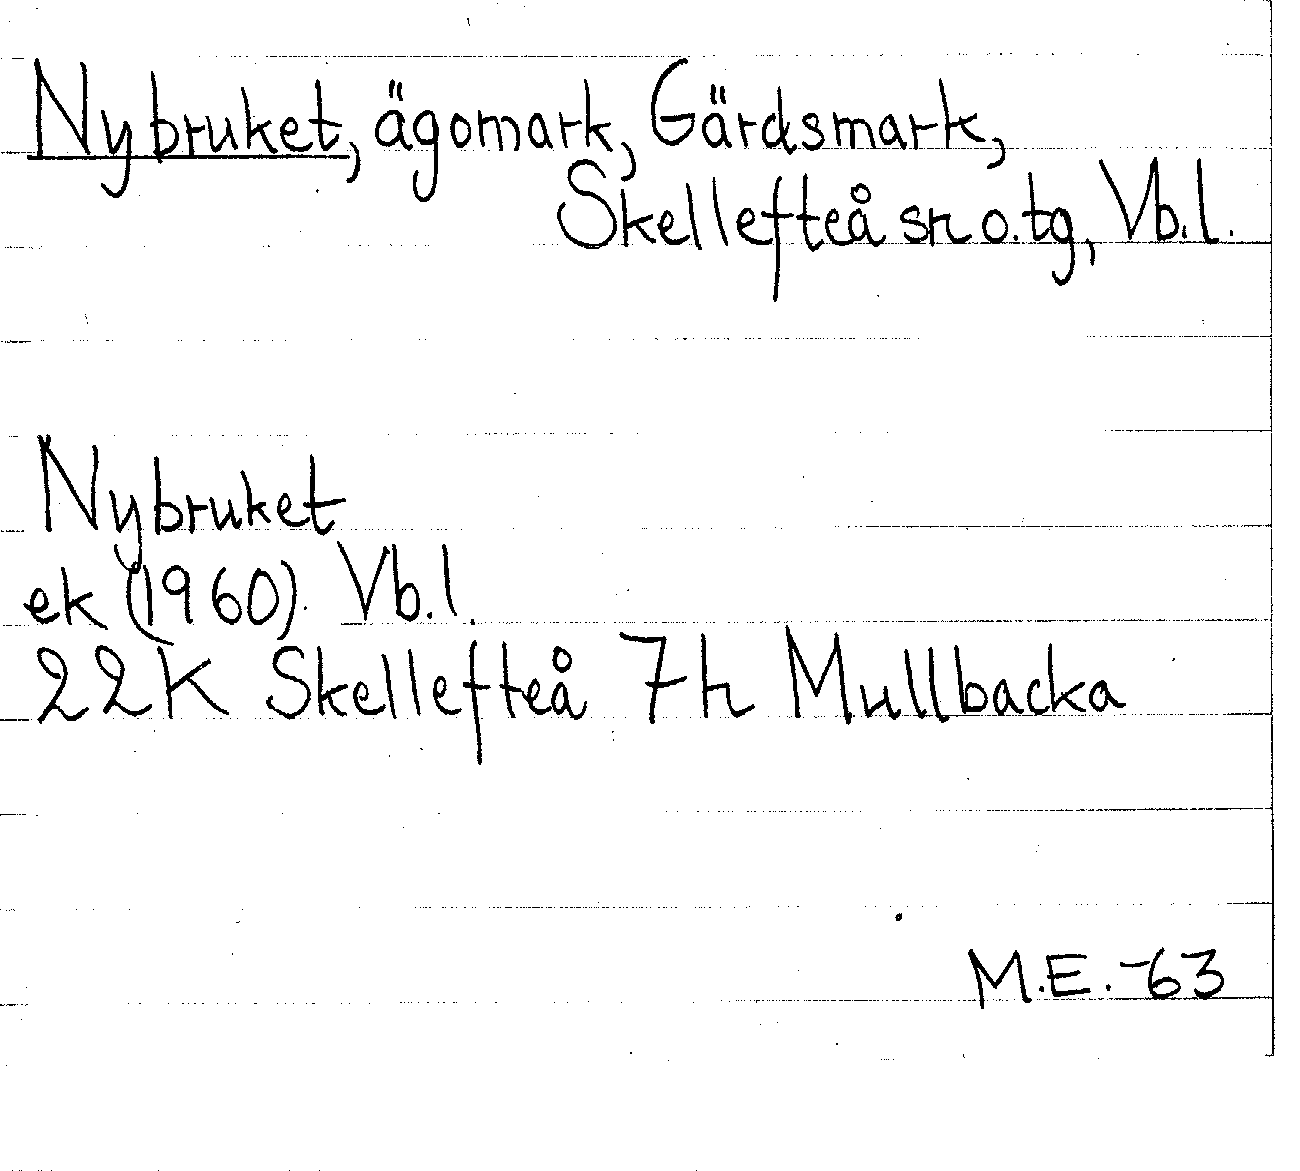 Nybruket, ägomark, Gärdsmark,
Skellefteå sn o. tg, Vb. l.
Nybruket
ek (1960) Vb. l.
22K Skellefteå 7h Mullbacka
M.E. -63